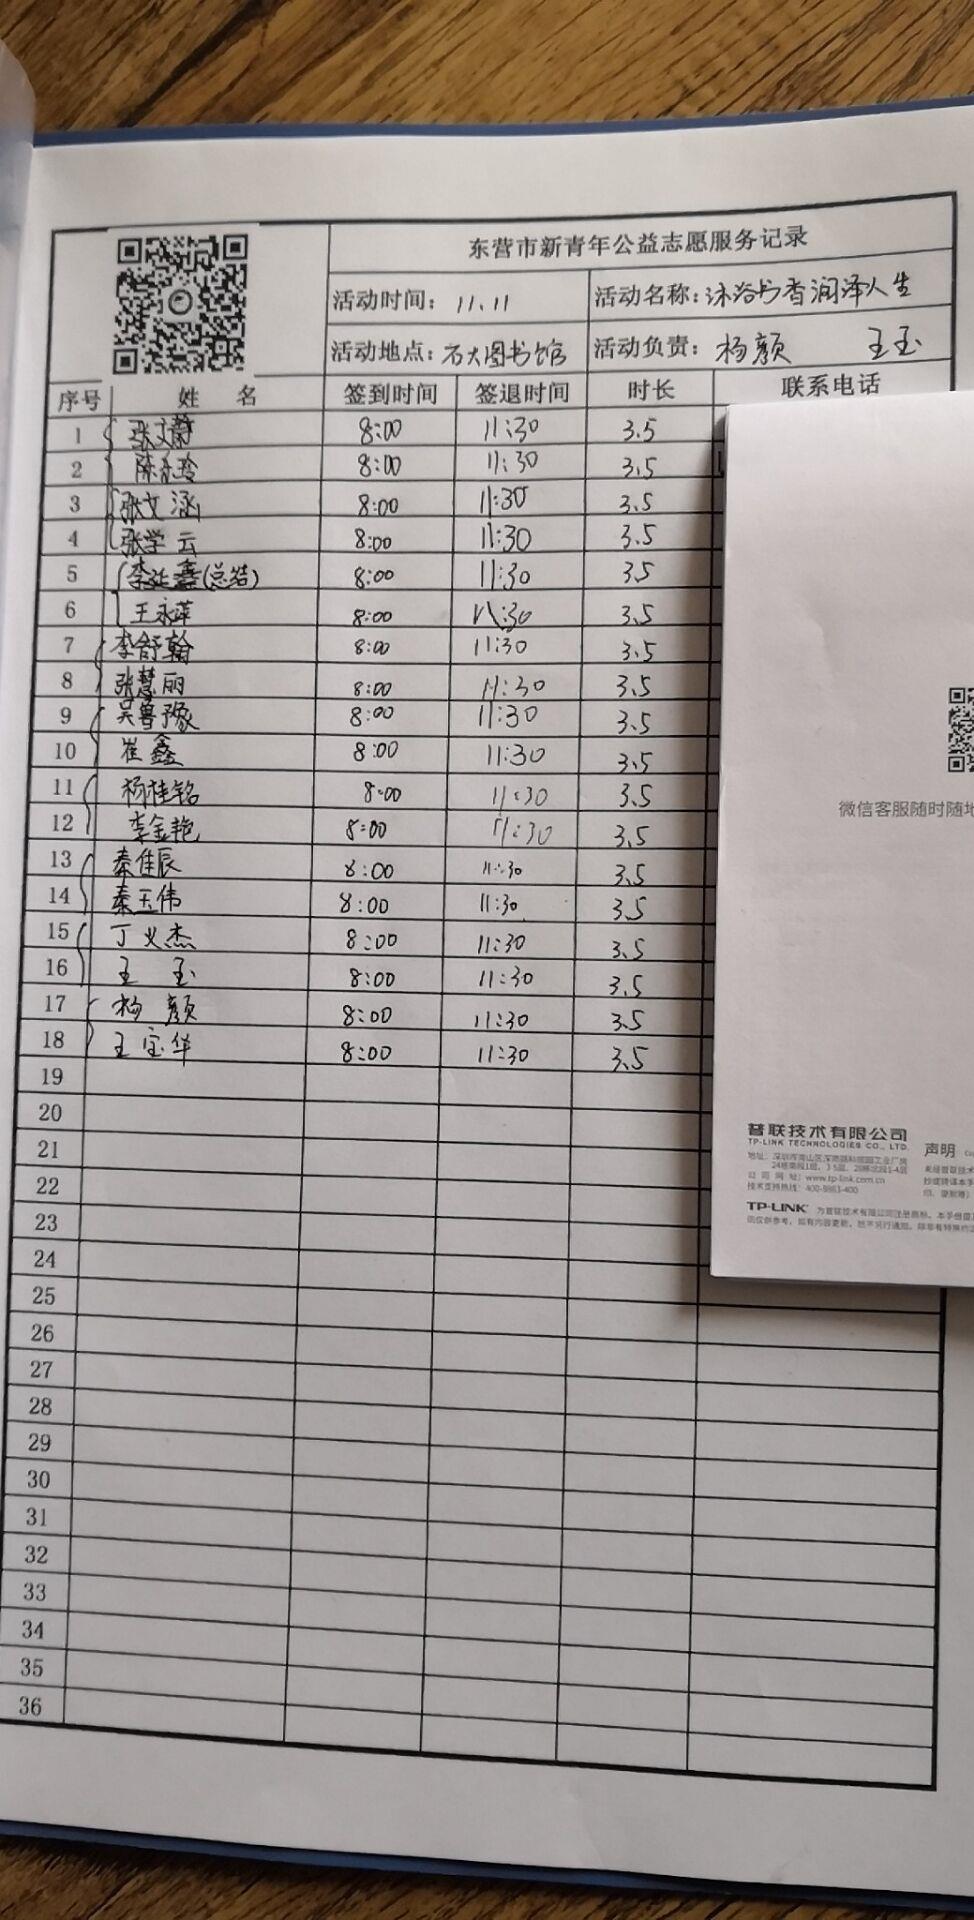 东营市新青年公益志愿服务记录
活动时间：11.11 活动名称：沐浴书香润泽人生
活动地点：石大图书馆 活动负责：杨颜 王玉
序号 姓 名 签到时间 签退时间 时长 联系电话
1 张文静 8:00 11:30 3.5
2 陈乐玲 8:00 11:30 3.5
3 张文涵 8:00 11:30 3.5
4 张学云 8:00 11:30 3.5
5 李延鑫(总结) 8:00 11:30 3.5
6 王永萍 8:00 11:30 3.5
7 李舒翰 8:00 11:30 3.5
8 张慧丽 8:00 11:30 3.5
9 吴鲁豫 8:00 11:30 3.5
10 崔鑫 8:00 11:30 3.5
11 杨桂铭 8:00 11:30 3.5
12 李金艳 8:00 11:30 3.5
13 秦佳辰 8:00 11:30 3.5
14 秦玉伟 8:00 11:30 3.5
15 丁义杰 8:00 11:30 3.5
16 王 玉 8:00 11:30 3.5
17 杨 颜 8:00 11:30 3.5
18 王宝华 8:00 11:30 3.5
19
20
21
22
23
24
25
26
27
28
29
30
31
32
33
34
35
36
微信客服随时随地
普联技术有限公司
TP-LINK TECHNOLOGIES CO., LTD.
地址：深圳市南山区深南路科技园工业厂房
24栋南段1层、3-5层、28栋北段1-4层
公司网址：www.tp-link.com.cn
技术支持热线：400-8863-400
声明
未经普联技术
TP-LINK 为普联技术有限公司注册商标。本手册